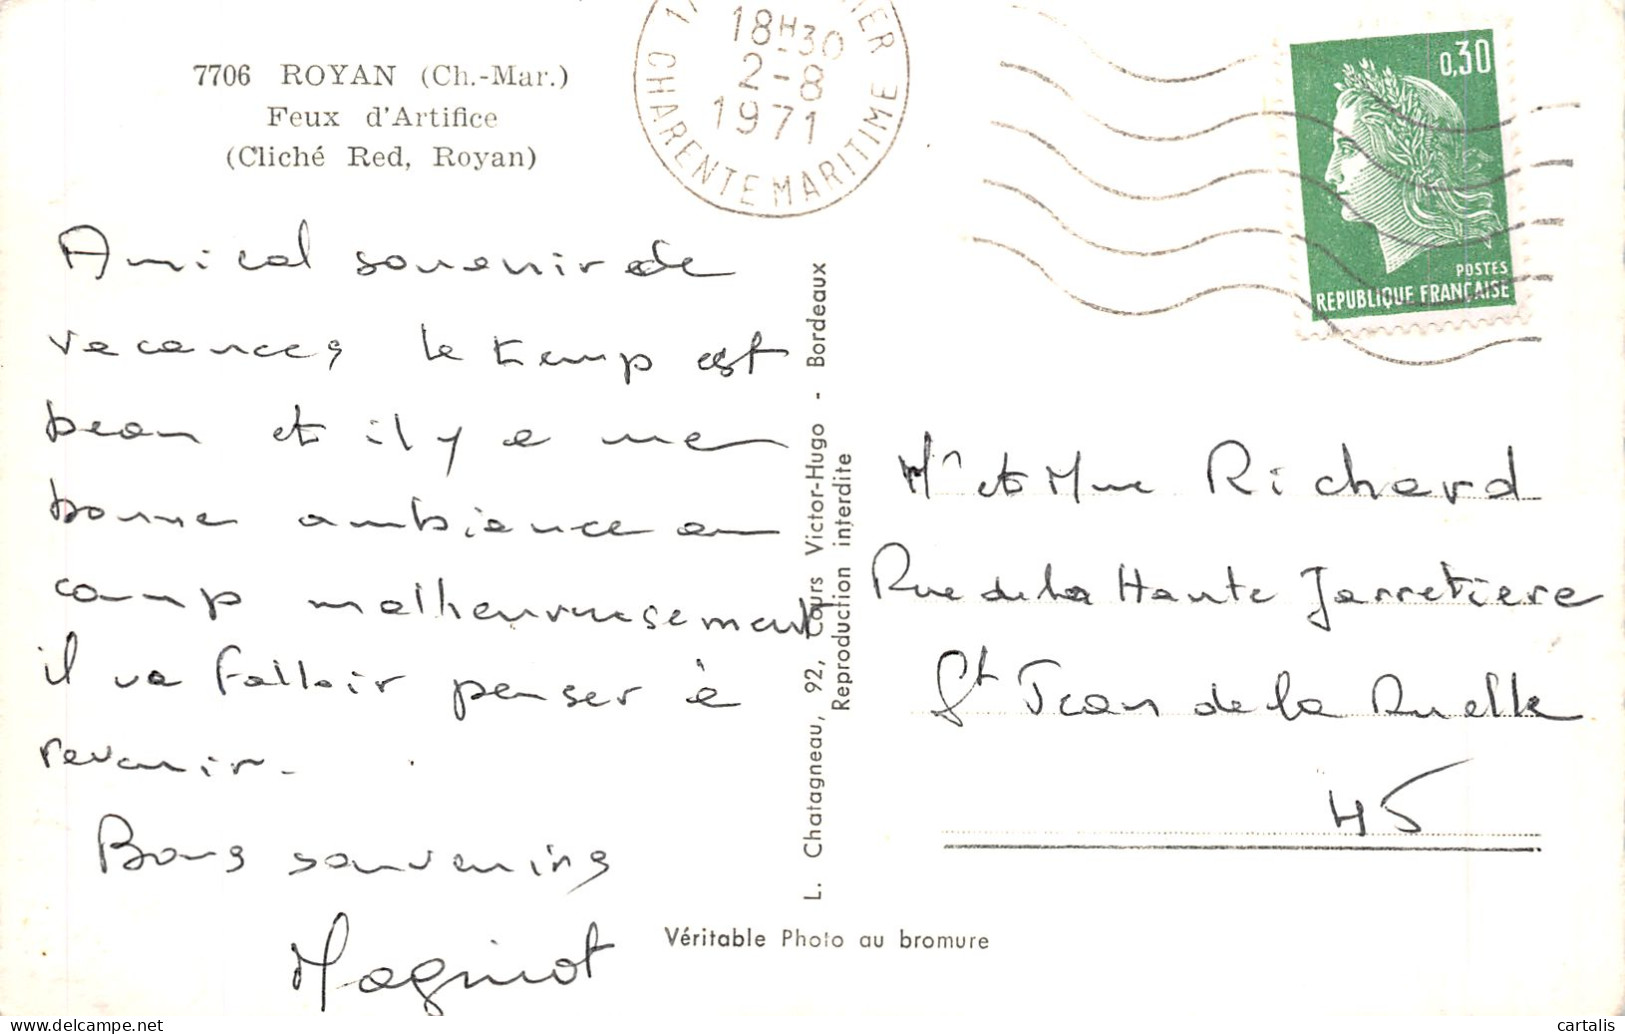 7706 ROYAN (Ch.-Mar.)
Feux d'Artifice
(Cliché Red, Royan)
18H30
2-8
1971
CHARENTE MARITIME
0,30
POSTES
REPUBLIQUE FRANÇAISE
Amical souvenir de
vacances le temp est
beau et il y a une
bonne ambiance au
camp malheureusement
il va falloir penser à
revenir.
Bons souvenirs
Maginot
L. Chatagneau, 92, Cours Victor-Hugo - Bordeaux
Reproduction interdite
Mr et Mme Richard
Rue de la Haute Jarretiere
St Jean de la Ruelle
45
Véritable Photo au bromure
www.delcampe.net
cartalis